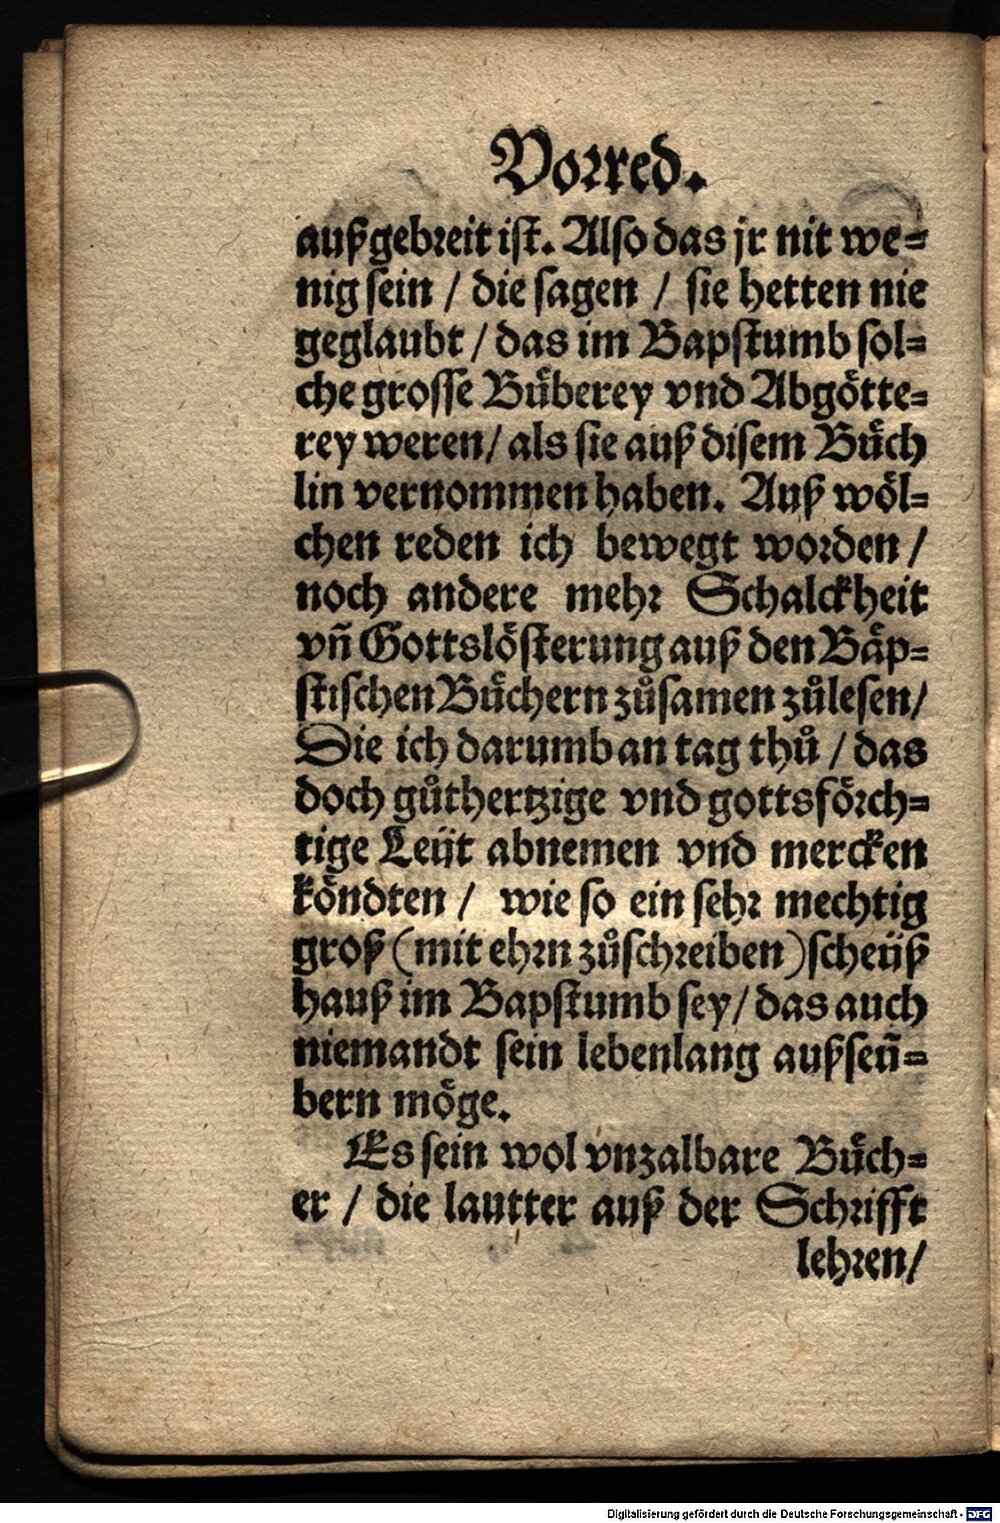 Vorred.
außgebreit ist. Also das jr nit we=
nig sein / die sagen / sie hetten nie
geglaubt / das im Bapstumb sol=
che grosse Büberey vnd Abgötte=
rey weren / als sie auß disem Büch
lin vernommen haben. Auß wöl=
chen reden ich bewegt worden /
noch andere mehr Schalckheit
vñ Gottslösterung auß den Bäp=
stischen Büchern zůsamen zůlesen /
Die ich darumb an tag thů / das
doch gůthertzige vnd gottsförch=
tige Leüt abnemen vnd mercken
köndten / wie so ein sehr mechtig
groß (mit ehrn zůschreiben) scheüß
hauß im Bapstumb sey / das auch
niemandt sein lebenlang außseü=
bern möge.
Es sein wol vnzalbare Büch=
er / die lautter auß der Schrifft
lehren /
Digitalisierung gefördert durch die Deutsche Forschungsgemeinschaft - DFG